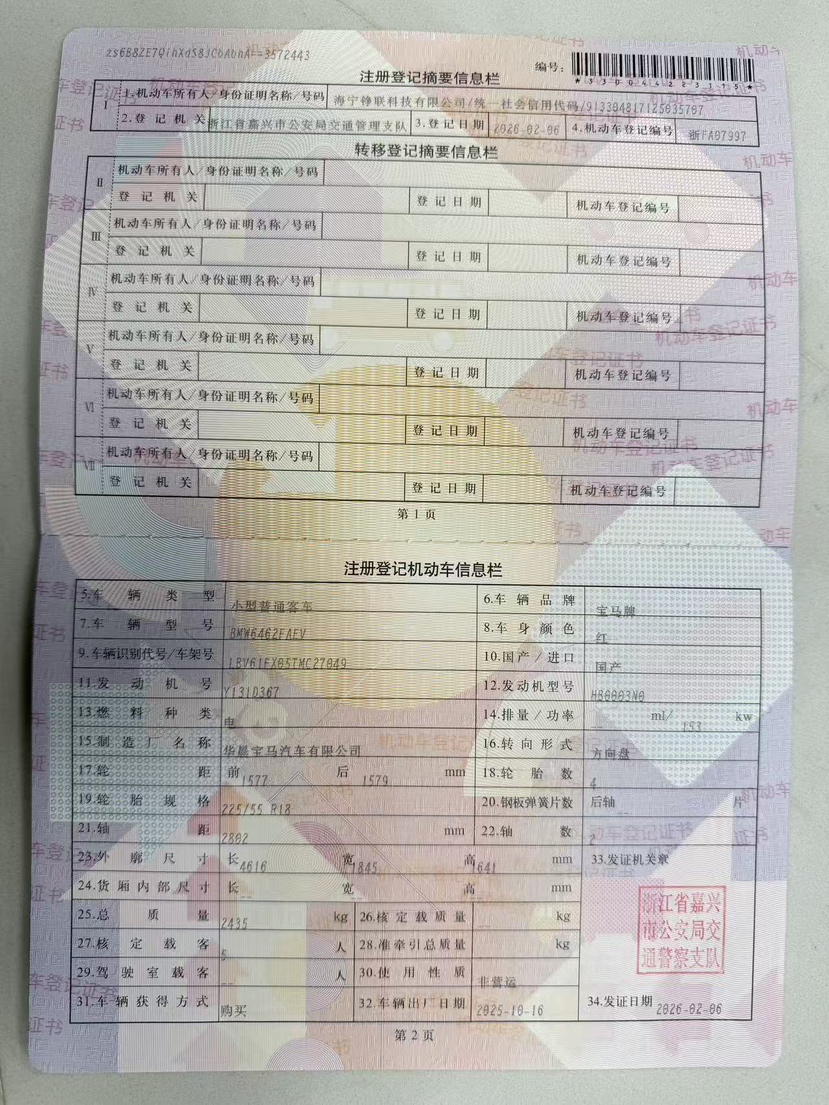 zs6B8ZE7QihXdS8JCbAbhA==3572443
编号:
*330044223175*
注册登记摘要信息栏
I 1.机动车所有人/身份证明名称/号码 海宁铮联科技有限公司/统一社会信用代码/913304817125035707
2.登记机关 浙江省嘉兴市公安局交通管理支队 3.登记日期 2026-02-06 4.机动车登记编号 浙FA07997
转移登记摘要信息栏
II 机动车所有人/身份证明名称/号码
登记机关 登记日期 机动车登记编号
III 机动车所有人/身份证明名称/号码
登记机关 登记日期 机动车登记编号
IV 机动车所有人/身份证明名称/号码
登记机关 登记日期 机动车登记编号
V 机动车所有人/身份证明名称/号码
登记机关 登记日期 机动车登记编号
VI 机动车所有人/身份证明名称/号码
登记机关 登记日期 机动车登记编号
VII 机动车所有人/身份证明名称/号码
登记机关 登记日期 机动车登记编号
第1页
注册登记机动车信息栏
5.车辆类型 小型普通客车 6.车辆品牌 宝马牌
7.车辆型号 BMW6462FAEV 8.车身颜色 红
9.车辆识别代号/车架号 LBV61FX05TMC27049 10.国产/进口 国产
11.发动机号 Y131D367 12.发动机型号 HB0003N0
13.燃料种类 电 14.排量/功率 ml/ 153 kw
15.制造厂名称 华晨宝马汽车有限公司 16.转向形式 方向盘
17.轮距 前 1577 后 1579 mm 18.轮胎数 4
19.轮胎规格 225/55 R18 20.钢板弹簧片数 后轴 片
21.轴距 2802 mm 22.轴数 2
23.外廓尺寸 长 4616 宽 1845 高 1641 mm 33.发证机关章
24.货厢内部尺寸 长 宽 高 mm
浙江省嘉兴
市公安局交
通警察支队
25.总质量 2435 kg 26.核定载质量 kg
27.核定载客 5 人 28.准牵引总质量 kg
29.驾驶室载客 人 30.使用性质 非营运
31.车辆获得方式 购买 32.车辆出厂日期 2025-10-16 34.发证日期 2026-02-06
第2页